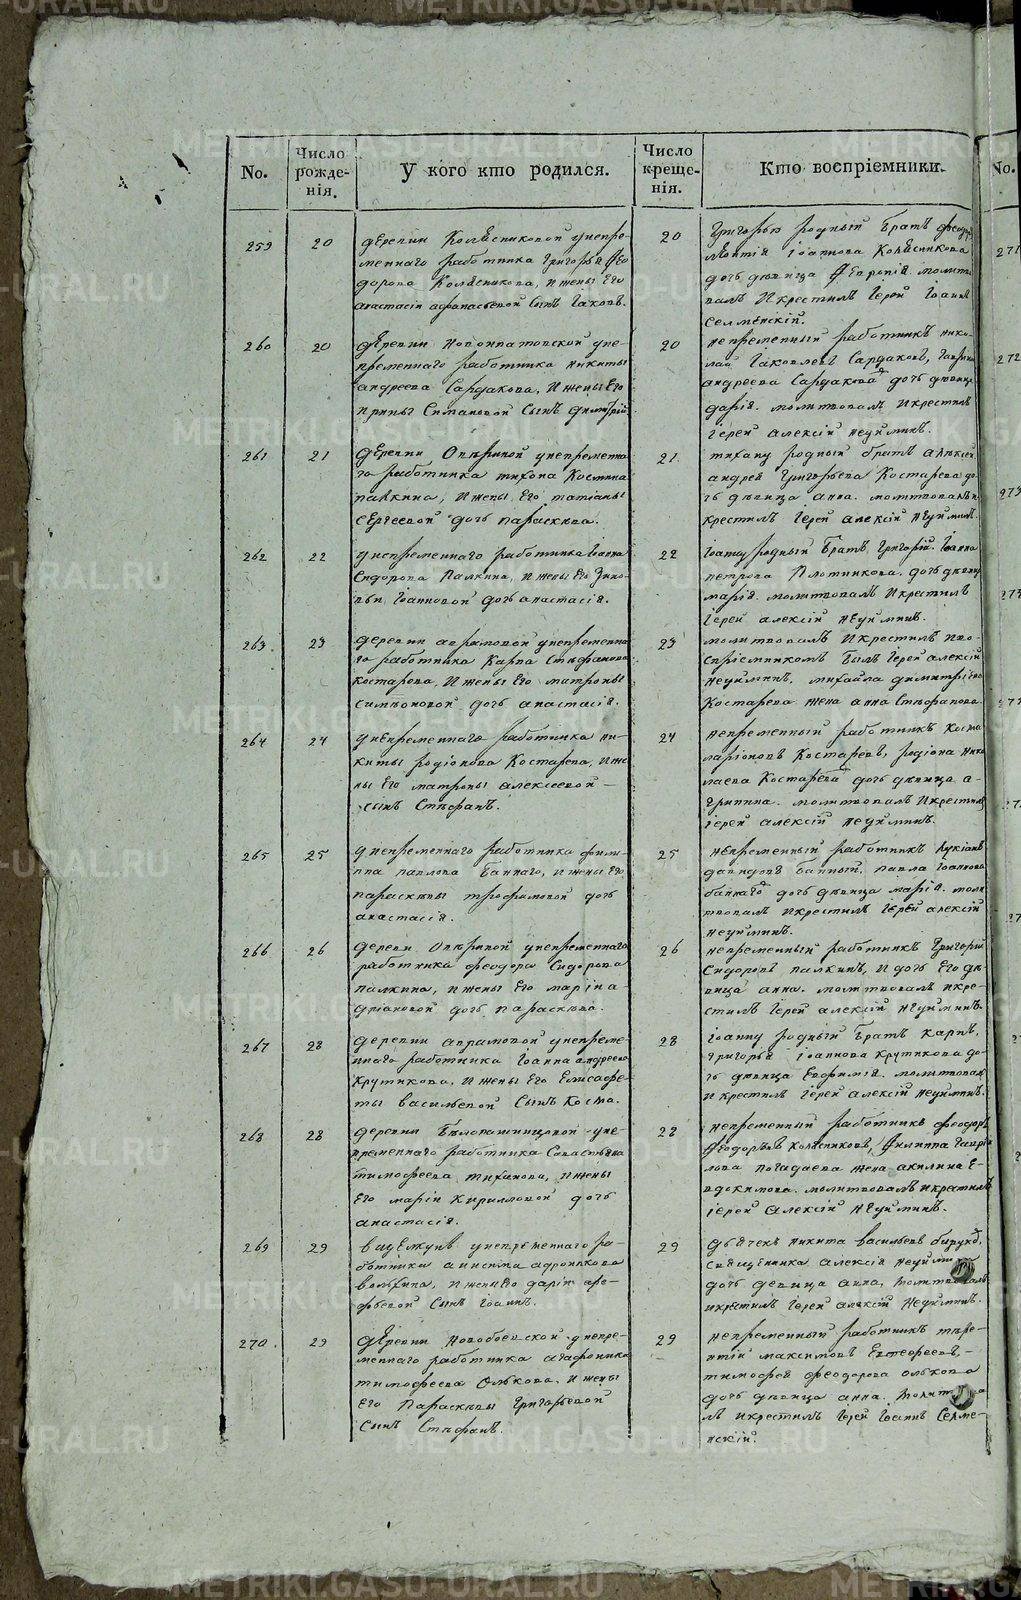 No.
Число рожде-нія.
У кого кто родился.
Число креще-нія.
Кто воспріемники.
No.
259
20
деревни Колѣсниковой унепре-
меннаго работника григорья Фео
дорова Колѣсникова, и жены Его
анастасіи афанасьевой Сынъ Іаковъ.
20
Григорью родный Братъ
Іоаннова Колѣсникова
дочь дѣвица Февронія молит
валъ И крестилъ Іерей Іоаннъ
Селменскій.
260
20
деревни унe
премѣннаго работника никиты
андреева Сардакова, И жены Его
ирины Симановой Сынъ димитрій
20
непременный работникъ нико
лай Іаковлевъ Сардаковъ, гаврила
андреева Сардакова дочь дѣвица
дарія. молитвовалъ И крестилъ
Іерей алексій неуйминъ.
261
21
деревни унепременна
го работника тихона Космина
палкина, И жены Его татіаны
Сергеевой дочь параскева.
21
тихану родный братъ алексѣй
андрея Григорьева Костарева до
чь дѣвица анна. молитвовалъ и
крестилъ Іерей алексій неуйминъ.
262
22
унепременнаго работника Іоанна
Сидорова Палкина, И жены Его Зино
вьи Іоанновой дочь анастасія.
22
Іоанну родный Братъ Григорій. Іоанна
петрова Плотникова. дочь дѣвица
марія. молитвовалъ И крестилъ
Іерей алексій неуйминъ.
263
23
деревни аврамовой унепременна
го работника Карпа Стефанова
костарева, И жены Его матроны
Симеоновой дочь анастасія.
23
молитвовалъ И крестилъ И во-
спріемникомъ былъ Іерей алексій
неуйминъ. михайла димитріева
Костарева жена анна Стефанова.
264
24
унепременнаго работника ни-
киты родіонова Костарева, И же
ны Его матроны алексеевой -
сынъ Стефанъ.
24
непременный работникъ Косма
ларіоновъ Костаревъ, родіона Нико
лаева Костарева дочь дѣвица а-
грипина. молитвовалъ И крестилъ
іерей алексій неуйминъ.
265
25
унепременнаго работника фили-
ппа павлова Баннаго, И жены Его
параскевы трофимовой дочь
анастасія.
25
непременный работникъ Лукіанъ
давидовъ Банный. павла Іоаннова
баннаго дочь дѣвица марія. моли
твовалъ И крестилъ Іерей алексій
неуйминъ.
266
26
деревни унепременнаго
работника феодора Сидорова
палкина, И жены Его маріи а-
дріановой дочь параскева.
26
непременный работникъ Григорій
Сидоровъ палкинъ, И дочь Его дѣ-
вица анна. молитвовалъ И кре-
стилъ Іерей алексій неуйминъ.
267
28
деревни аврамовой унепреме-
ннаго работника Іоанна андреева
Крутикова, И жены Его Елисаве-
ты васильевой Сынъ Косма.
28
Іоанну родный Братъ карпъ.
григорья іоаннова крутикова до-
чь дѣвица Евфимія. молитвовалъ
И крестилъ Іерей алексій неуйминъ.
268
28
деревни Бѣлопашинцовой уне-
пременнаго работника Савастьяна
тимофеева тиханова, И жены
Его маріи Кирилловой дочь
анастасія.
28
непременный работникъ феодоръ
Феодоровъ колѣсниковъ, Филиппа гаври
лова Погадаева жена акилина Е-
вдокимова. молитвовалъ И крестилъ
іерей алексій неуйминъ.
269
29
унепременнаго ра-
ботника анисима адроникова
И жены Его даріи аре-
фьевой Сынъ Іоаннъ.
29
дьячекъ никита васильевъ
священника алексія неуймина
дочь девица анна, молитвовалъ
и крестилъ Іерей алексій неуйминъ.
270
29
деревни унепре-
меннаго работника агафоника
тимофеева Олькова. И жены
Его Параскевы Григорьевой
Сынъ Стефанъ.
29
непременный работникъ тере-
нтій максимовъ
тимофея феодорова олькова
дочь дѣвица анна. молитвова
лъ И крестилъ Іерей Іоаннъ Селме-
нскій.
METRIKI.GASO-URAL.RU